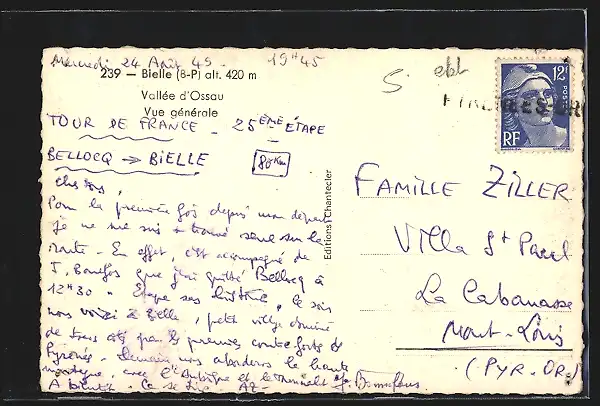 Mercredi 24 Août 49 - 19H45
239 — Bielle (B-P) alt. 420 m
Vallée d'Ossau
Vue générale
TOUR DE FRANCE - 25ÈME ÉTAPE
BELLOCQ → BIELLE 80 Km
Chers tous,
Pour la première fois depuis mon départ
je ne me suis trouvé seul sur la
route - En effet, c'est accompagné de
J. que j'ai quitté Bellocq à
12H30 - Étape sans histoire, le soir
nous voici à Bielle, petit village dominé
de tous côtés par les premiers contreforts des
Pyrénées - Demain nous aborderons la haute
montagne, avec l'Aubisque et le Tourmalet
A bientôt - Ce se tire -
Editions Chantecler
12F
POSTES
RF
FAMILLE ZILLER
Villa St Paul
La Cabanasse
Mont-Louis
(PYR-OR.)